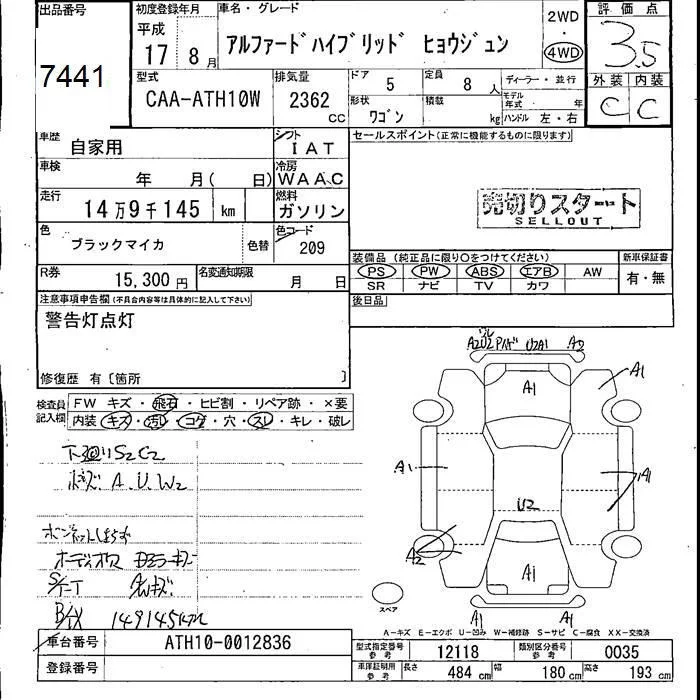 出品番号
7441
初度登録年月
平成
17 8月
車名・グレード
アルファードハイブリッド ヒョウジュン
2WD
・
4WD
評価点
3.5
外装 内装
C C
型式
CAA-ATH10W
排気量
2362
CC
ドア 5
定員 8人
ディーラー・並行
形状
ワゴン
積載
kg
モデル
年式 年
ハンドル 左・右
車歴 自家用
シフト
IAT
セールスポイント(正常に機能するものに限ります)
車検 年 月( 日)
冷房
WAAC
走行
14万9千145 km
燃料
ガソリン
売切りスタート
SELLOUT
色
ブラックマイカ
色替
色コード
209
装備品(純正品に限り○をつけてください)
新車保証書
PS PW ABS エアB AW
有・無
SR ナビ TV カワ
R券
15,300円
名変通知期限
月 日
後日品
注意事項申告欄(不具合内容等は具体的に記入して下さい)
警告灯点灯
修復歴 有〔箇所 〕
検査員
記入欄
FW キズ・飛石・ヒビ割・リペア跡・×要
内装・キズ・汚レ・コゲ・穴・スレ・キレ・破レ
A2U2 U2A1 A2
A1
A1
A1
A1
U2
A2
A1
A1
A1
下廻りS2C2
A.U.W2
149145km
スペア
A-キズ E-エクボ U-凹み W-補修跡 S-サビ C-腐食 XX-交換済
車台番号 ATH10-0012836
型式指定番号
参考
12118
類別区分番号
参考
0035
登録番号
車庫証明用
参考
長さ 484cm 幅 180cm 高さ 193cm